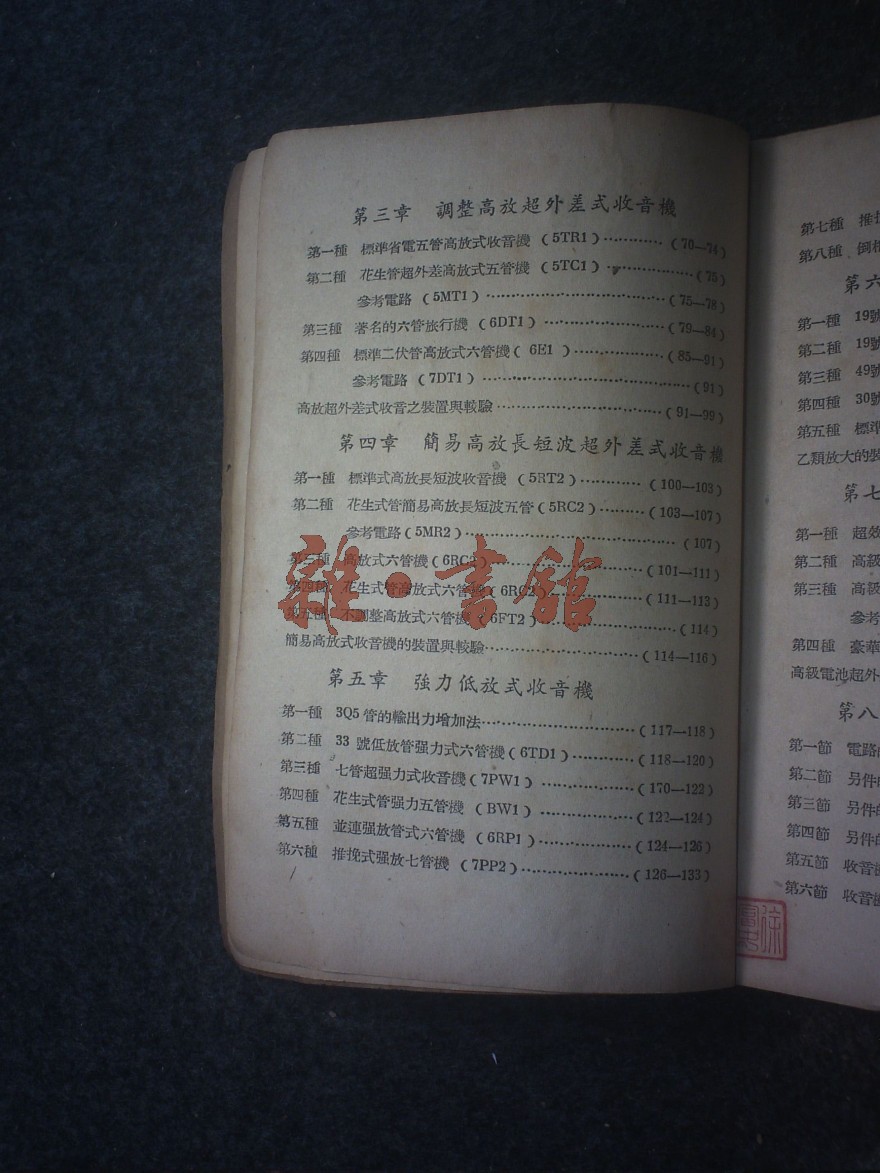 第三章 調整高放超外差式收音機
第一種 標準省電五管高放式收音機 (5TR1)………… (70—74)
第二種 花生管超外差高放式五管機 (5TC1)…………… (75)
參考電路 (5MT1)………………………… (75—78)
第三種 著名的六管旅行機 (6DT1)………………… (79—84)
第四種 標準二伏管高放式六管機( 6E1 )…………… (85—91)
參考電路 (7DT1)……………………………… (91)
高放超外差式收音之裝置與較驗………………………… (91—99)
第四章 簡易高放長短波超外差式收音機
第一種 標準式高放長短波收音機 (5RT2)………… (100—103)
第二種 花生式管簡易高放長短波五管(5RC2)……… (103—107)
參考電路(5MR2)……………………………… (107)
第三種 高放式六管機(6RC2)…………………… (101—111)
第四種 花生式管高放式六管機(6RC2)……………… (111—113)
第五種 不調整高放式六管機(6FT2)………………… (114)
簡易高放式收音機的裝置與較驗……………………… (114—116)
雜·書館
第五章 強力低放式收音機
第一種 3Q5管的輸出力增加法……………………… (117—118)
第二種 33號低放管强力式六管機(6TD1)…………… (118—120)
第三種 七管超强力式收音機(7PW1)……………… (170—122)
第四種 花生式管强力五管機 (BW1)……………… (122—124)
第五種 並連强放管式六管機 (6RP1)……………… (124—126)
第六種 推挽式强放七管機 (7PP2)………………… (126—133)
第七種 推挽
第八種 倒相
第六
第一種 19號
第二種 19號
第三種 49號
第四種 30號
第五種 標準
乙類放大的裝
第七
第一種 超效
第二種 高級
第三種 高級
參考
第四種 豪華
高級電池超外
第八
第一節 電路
第二節 另件的
第三節 另件的
第四節 另件的
第五節 收音機
第六節 收音機